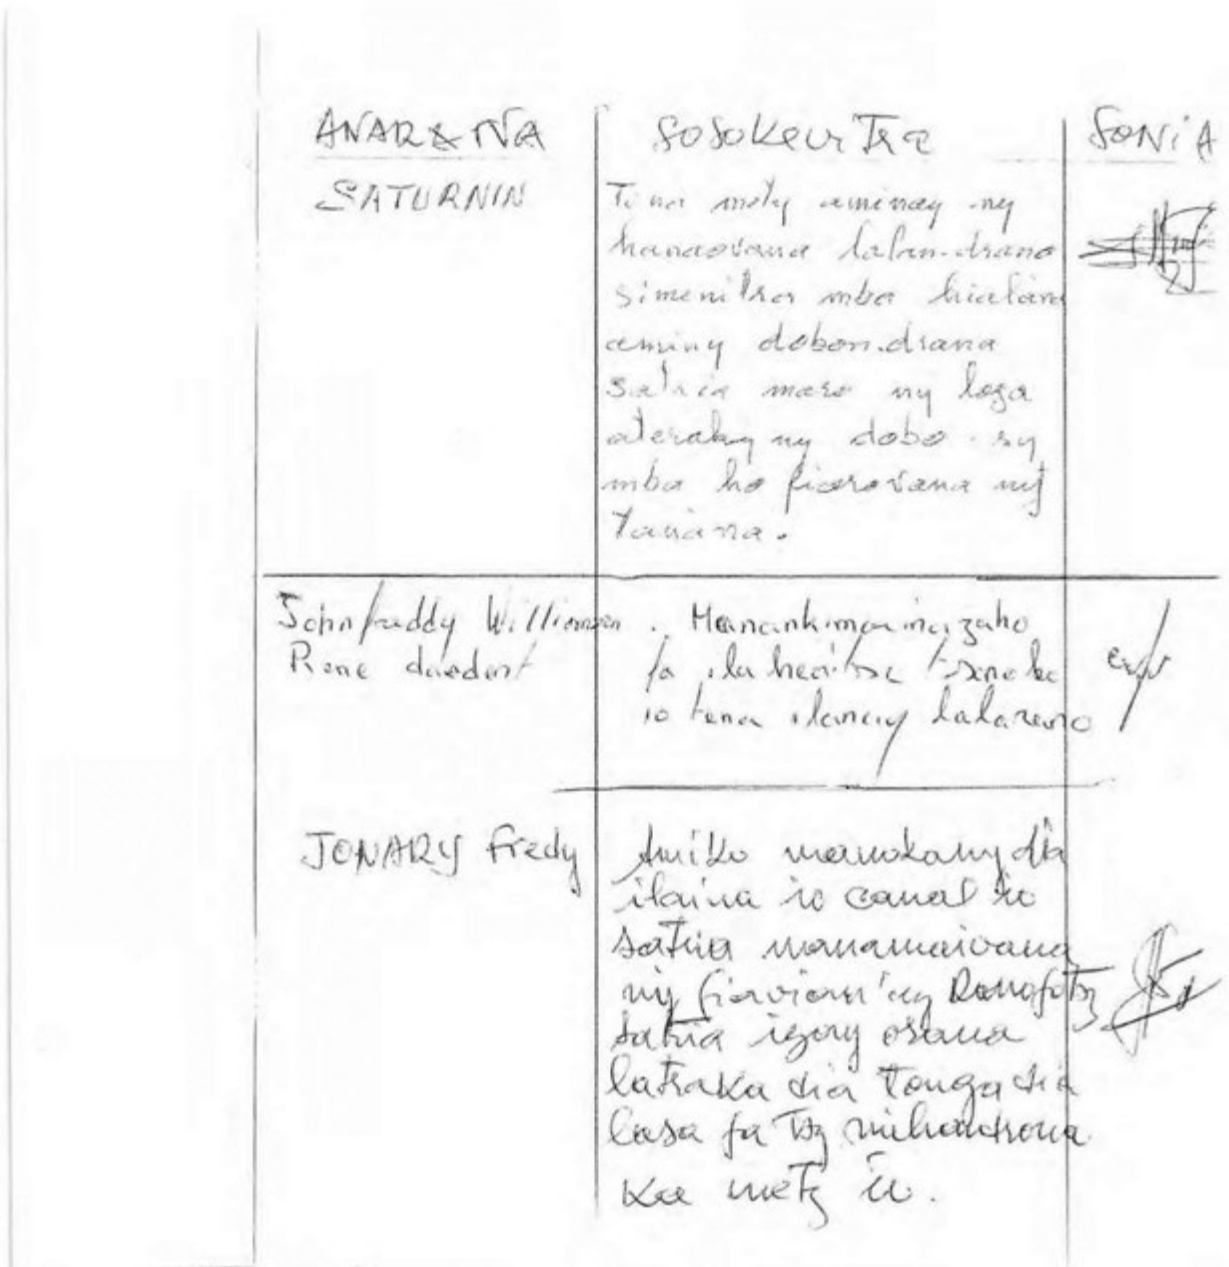 ANARANA
SOSOKEVITRA
SONIA
SATURNIN
Tena mety aminay ny
hanaovana lalan-drano
simenitra mba hialana
aminy dobon-drano
satria maro ny loza
ateraky ny dobo sy
mba ho fiarovana ny
tanana.
John freddy William
Rene
. Manankimarina zaho
fa ilaina
io tena ilainay lalandrano
JONARY Fredy
Amiko manokany dia
ilaina io canal io
satria manamaivana
ny fiavian'ny Ranofotsy
satria izay orana
latraka dia tonga dia
lasa fa tsy mihandrona
ka mety io.